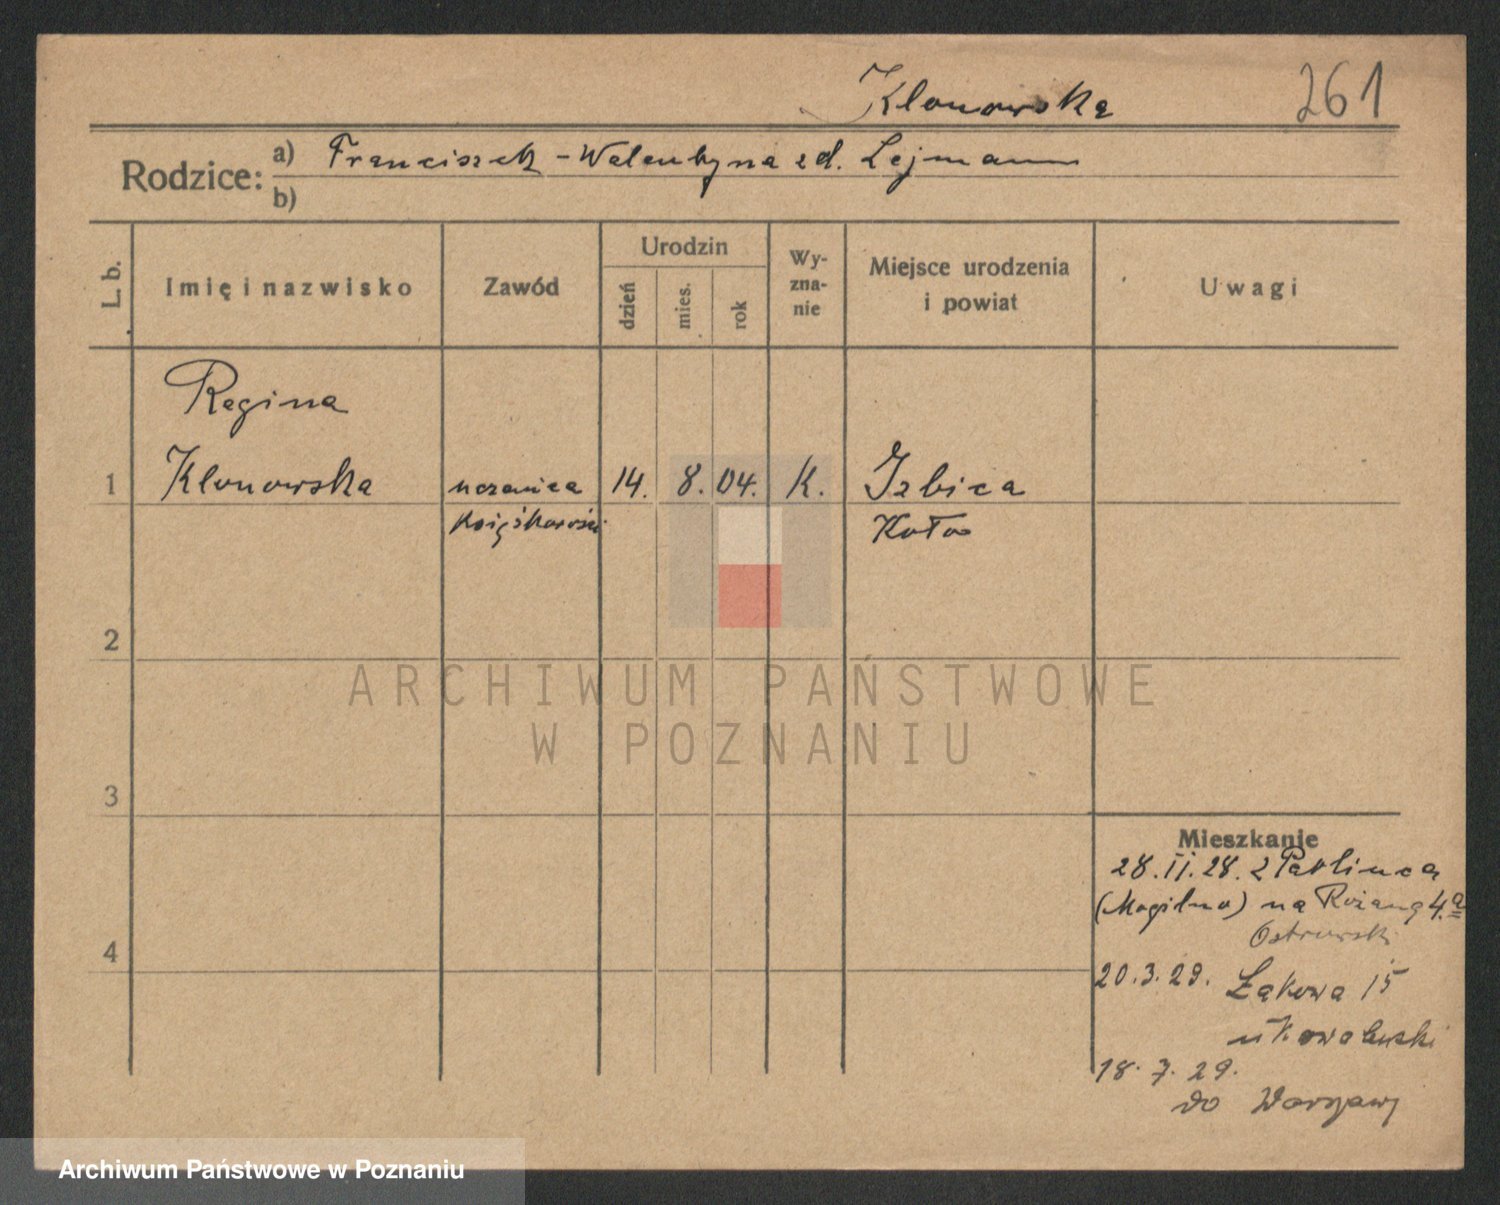 Klonowska
261
Rodzice:
a) Franciszek - Walentyna zd. Lejmann
b)
L. b.
Imię i nazwisko
Zawód
Urodzin
dzień
mies.
rok
Wy-
zna-
nie
Miejsce urodzenia
i powiat
Uwagi
Regina
1 Klonowska uczenica 14. 8. 04. K. Izbica
Koło
2
3
4
Mieszkanie
28.II.28. z
(Mogilno) na Różaną 4.a
Ostrowski
20.3.29. Łąkowa 15
u Kowalewski
18. 7. 29.
do Warszawy
ARCHIWUM PAŃSTWOWE
W POZNANIU
Archiwum Państwowe w Poznaniu